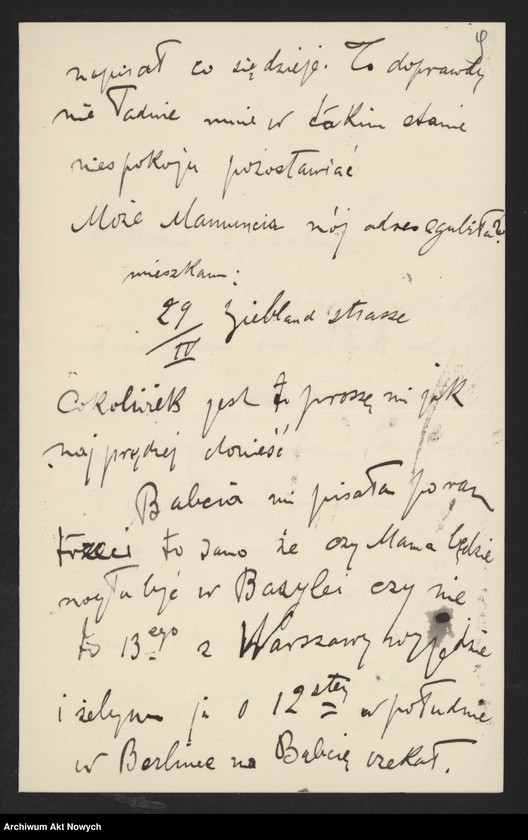 napisał co się dzieje. To doprawdy
nie ładnie mnie w takim stanie
niespokoju pozostawiać
Może Mamuncia mój adres zgubiła?
mieszkam:
29/IV Ziebland strasse
Cokolwiek jest to proszę mi jak
najprędzej donieść
Babcia mi pisała po raz
trzeci to samo że czy Mama będzie
mogła być w Bazylei czy nie
to 13ego z Warszawy wyjedzie
i żebym ja o 12stej w południe
w Berlinie na Babcię czekał.
Archiwum Akt Nowych